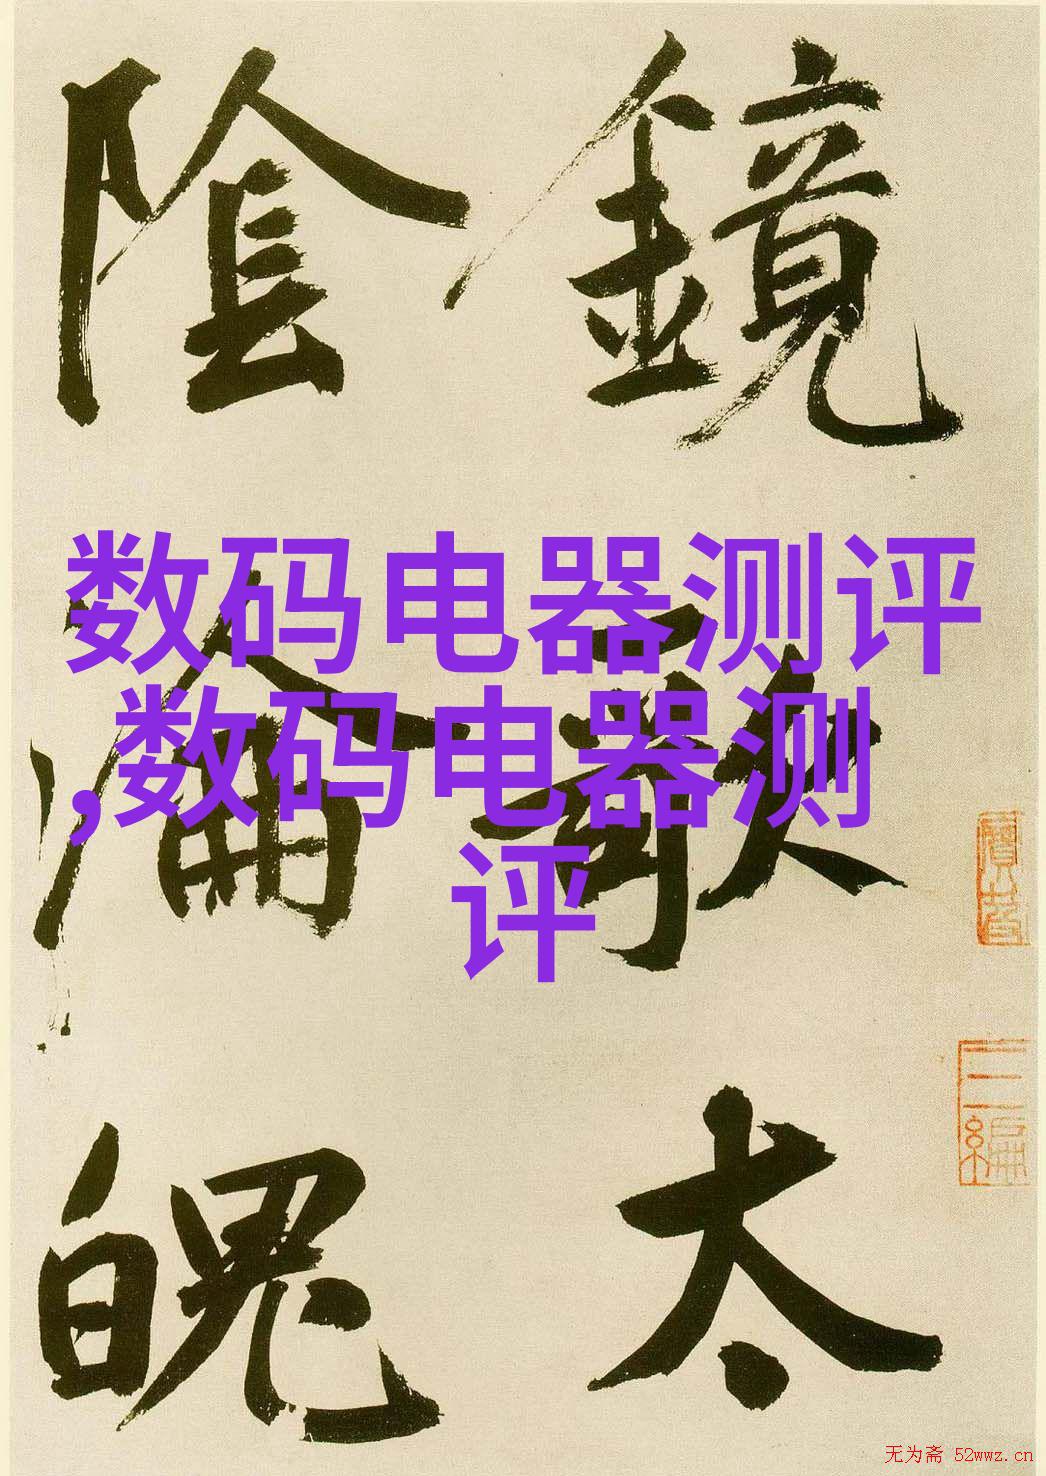 鏡敢太
陰淪魄
数码电器测评
,数码电器测
评
三編
无为斋 52wwz.cn